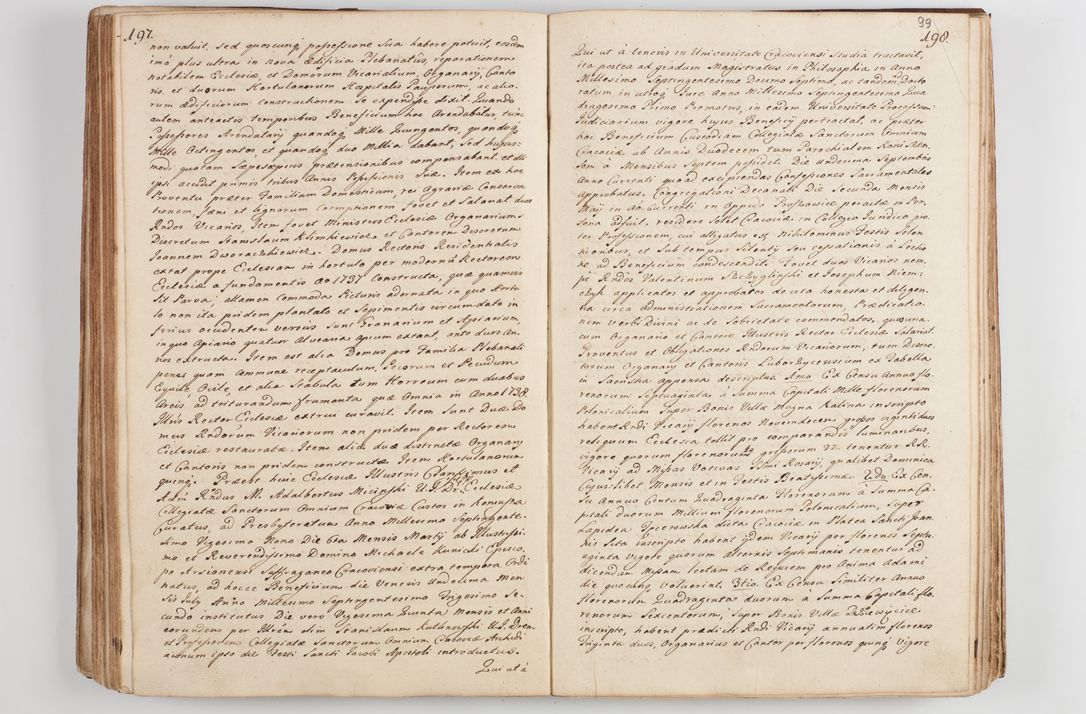 197.
non valuit, sed quoscunq possessione sua habere potuit, eosdem
imò plus ultra in nova ædificia Plebanatus, reparationem
notabilem Ecclesiæ, et Domorum Vicarialium, Organarij, Canto
ris, et duorum Hortulanorum Hospitalis Pauperum, ac alio-
rum ædificiorum constructionem se expendisse dixit. Quando
autem anteactis temporibus Beneficium hoc Arendabatur, tunc
Possessores Arendatarij quandoq Mille Quingentos, quandoq
Mille Octingentos et quandoq duo Millia dabant, sed hujus-
modi quotam sæpesæpius prætensionibus compensabant, et illi
ipsi accidit primis tribus Annis Possessionis Suæ. Item ex hoc
Proventu præter Familiam Domesticam, rei Agrariæ Conserva
tionem, fæni et lignorum Coemptionem fovet et Salariat duos
Rndos Vicarios, Item fovet Ministros Ecclesiæ Organarium
Discretum Stanislaum Klimkiewicz et Cantorem Discretum
Joannem Dworaczkiewicz. Domus Rectoris Residentialis
extat prope Ecclesiam in hortulo per modernũ Rectorem
Ecclesiæ a fundamentis Ao 1737 Constructa, quæ quamvis
sit Parva, attamen Commoda Picturis adornata in quo Horto
lo non ita pridem plantato et Sepimentis circumdato in
ferius occidentem versus sunt Granarium et Apiarium
in quo Apiario quatuor Alvearia apium extant, ante duos An-
nos extructa. Item est alia Domus pro Familia Plebanali
penes quam commune receptaculum, Pecorum et Pecudum
Equile, Ovile, et alia Stabula tum Horreum cum duabus
Areis ad triturandum frumenta quæ Omnia in Anno 1738.
Illũs Rector Ecclesiæ extrui curavit. Item sunt Duæ Do
mus Rndorum Vicariorum non pridem per Rectorem
Ecclesiæ restauratæ. Item aliæ duæ distinctæ Organarij
et Cantoris non pridem constructæ. Item Hortulanorum
quinq. Præest huic Ecclesiæ Illustris Clarissimus et
Adm Rndus M. Adalbertus Miciński U.J.Dr Ecclesiæ
Collegiatæ Sanctorum Omnium Cracoviæ Custos in
Curatus, ad Presbyteratum Anno Millesimo Septingente-
simo Vigesimo Nono Die 6ta Mensis Martij ab Illustrissi-
mo et Reverendissimo Domino Michaele Kunicki Episco-
po Arsionensi Suffraganeo Cracoviensi extra tempora Ordi
natus, ad hocce Beneficium die Veneris Undecima Men
sis July Anno Millesimo Septingentesimo Trigesimo Se-
cundo institutus Die vero Vigesima Quinta Mensis et Anni
eorundem per Illrem olim Stanislaum U.J.Drem
et Professorem Collegiatæ Sanctorum Omnium Cracoviæ Archidi
aconum ipso die Festi Sancti Jacobi Apostoli introductus.
Qui ut à
99
198.
Qui ut à teneris in Universitate Cracoviensi studia tractavit,
ita postea ad gradum Magistratus in Philosophia in Anno
Millesimo Septingentesimo Decimo Septimo ac tandem Docto
ratum in utroq Jure Anno Millesimo Septingentesimo Qua
dragesimo Primo Promotus, in eadem Universitate Professum
Judiciarium vigore hujus Beneficij pertractat, ac præter
hoc Beneficium Custodiam Collegiatæ Sanctorum Omnium
Cracoviæ ab Annis Duodecem tum Parochialem
sem à Mensibus Septem possidet. Die undecima Septembris
Anno Currenti quoad excipiendas Confessiones Sacramentales
approbatus. Congregationi Decanali Die Secunda Mensis
Maij in Ao Currenti in Oppido peractæ in Per
sona adfuit, residere solet Cracoviæ in Collegio Juridico pro
ter Professionem, cui alligatus est Nihilominus Festis Solen
nioribus et Sub tempus Silentij seu cessationis à Lectio
ne ad Beneficium condescendit. Fovet duos Vicarios nem
pe Rndos Valentinum et Josephum Niem-
czyk applicatos et approbatos de vita honesta et diligen-
tia circa administrationem Sacramentorum, Prædicatio
nem verbi Divini ac de Sobrietate commendatos, quos una
cum Organario et Cantore Illustris Rector Ecclesiæ Salariat.
Proventus et Obligationes Rndorum Vicariorum, tum Discre-
torum Organarij et Cantoris Luborzycensium ex Tabella
in Sacristia appensa descriptus. Imo Ex Censu Annuo flo-
renorum Septuaginta à Summa Capitali Mille florenorum
Polonicalium super Bonis Villæ Magna Kalina inscripto
habent Rndi Vicarij florenos Novemdecem, grossos viginti duos
reliquum Ecclesia tollit pro comparandis luminaribus,
vigore quorum florenorum 19 grossorum 22. tenentur RR.
Vicarij ad Missas Votivas Ssmi Rosarij, qualibet Dominica
Cujus-libet Mensis et in Festis Beatissimæ. 2do Ex Cen-
su Annuo Centum Quadraginta Florenorum à Summa Ca-
pitali duorum Millium Florenorum Polonicalium, super
Lapidea dicta Cracoviæ in Platea Sancti Joan-
nis sita inscripto habent ijdem Vicarij per florenos Septu-
aginta vigore quorum alternis Septimanis tenentur ad
dicendam Missam lectam de Requiem pro Anima Adami
die quocunq voluerint. 3tio. Ex Censu Similiter Annuo
florenorum Quadraginta duorum à Summa Capitali flo
renorum Sexcentorum, super Bonis Villæ
inscripto, habent prædicti Rndi Vicarij annuatim florenos
Triginta duos, Organarius et Cantor per florenos quinq Vigore